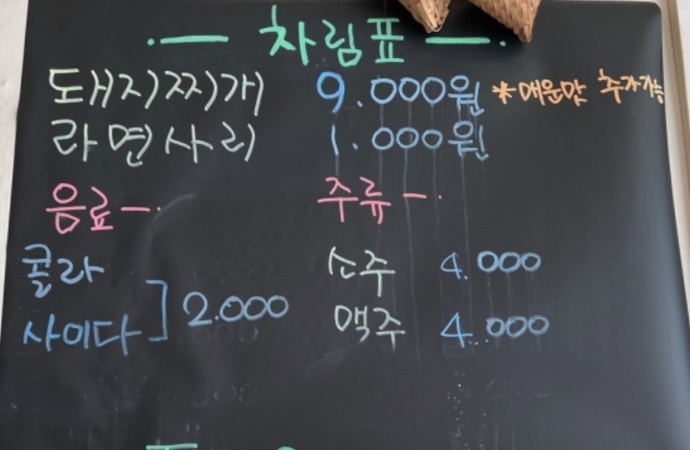 ·— 차림표 —·
돼지찌개 9.000원 *매운맛 추가가능
라면사리 1.000원
음료 —· 주류 —·
콜라 소주 4.000
사이다 ] 2.000 맥주 4.000